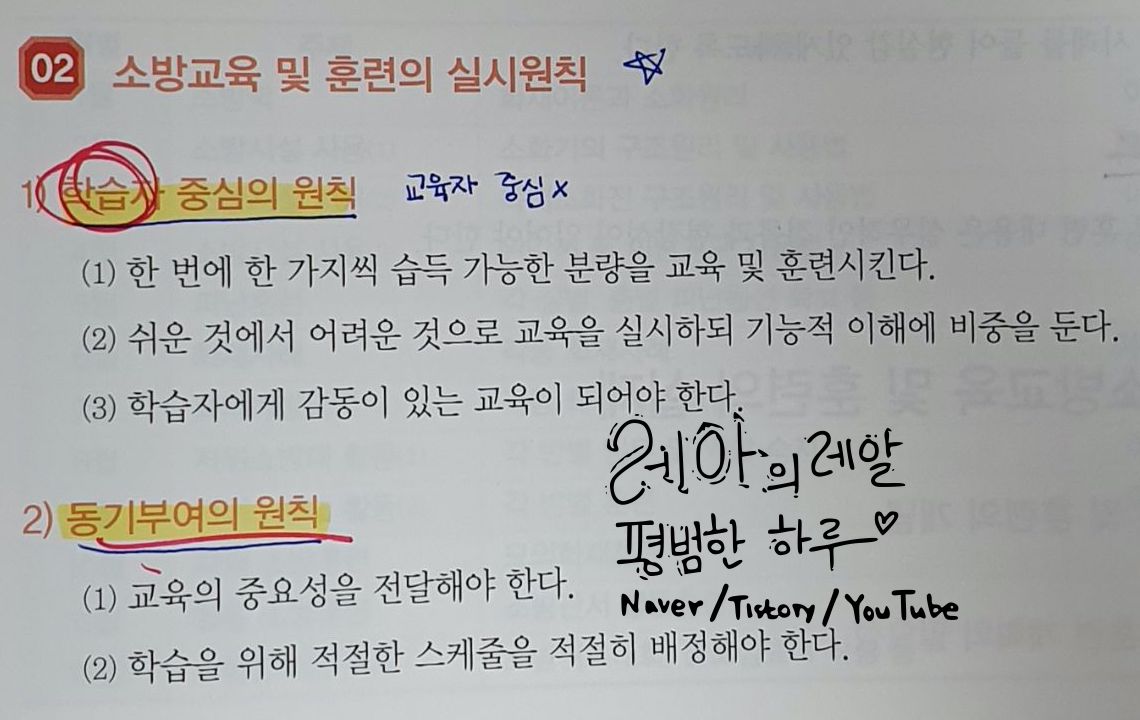 02 소방교육 및 훈련의 실시원칙
1) 학습자 중심의 원칙 교육자 중심 x
(1) 한 번에 한 가지씩 습득 가능한 분량을 교육 및 훈련시킨다.
(2) 쉬운 것에서 어려운 것으로 교육을 실시하되 기능적 이해에 비중을 둔다.
(3) 학습자에게 감동이 있는 교육이 되어야 한다.
레아의 레알
평범한 하루♡
Naver/Tistory/YouTube
2) 동기부여의 원칙
(1) 교육의 중요성을 전달해야 한다.
(2) 학습을 위해 적절한 스케줄을 적절히 배정해야 한다.